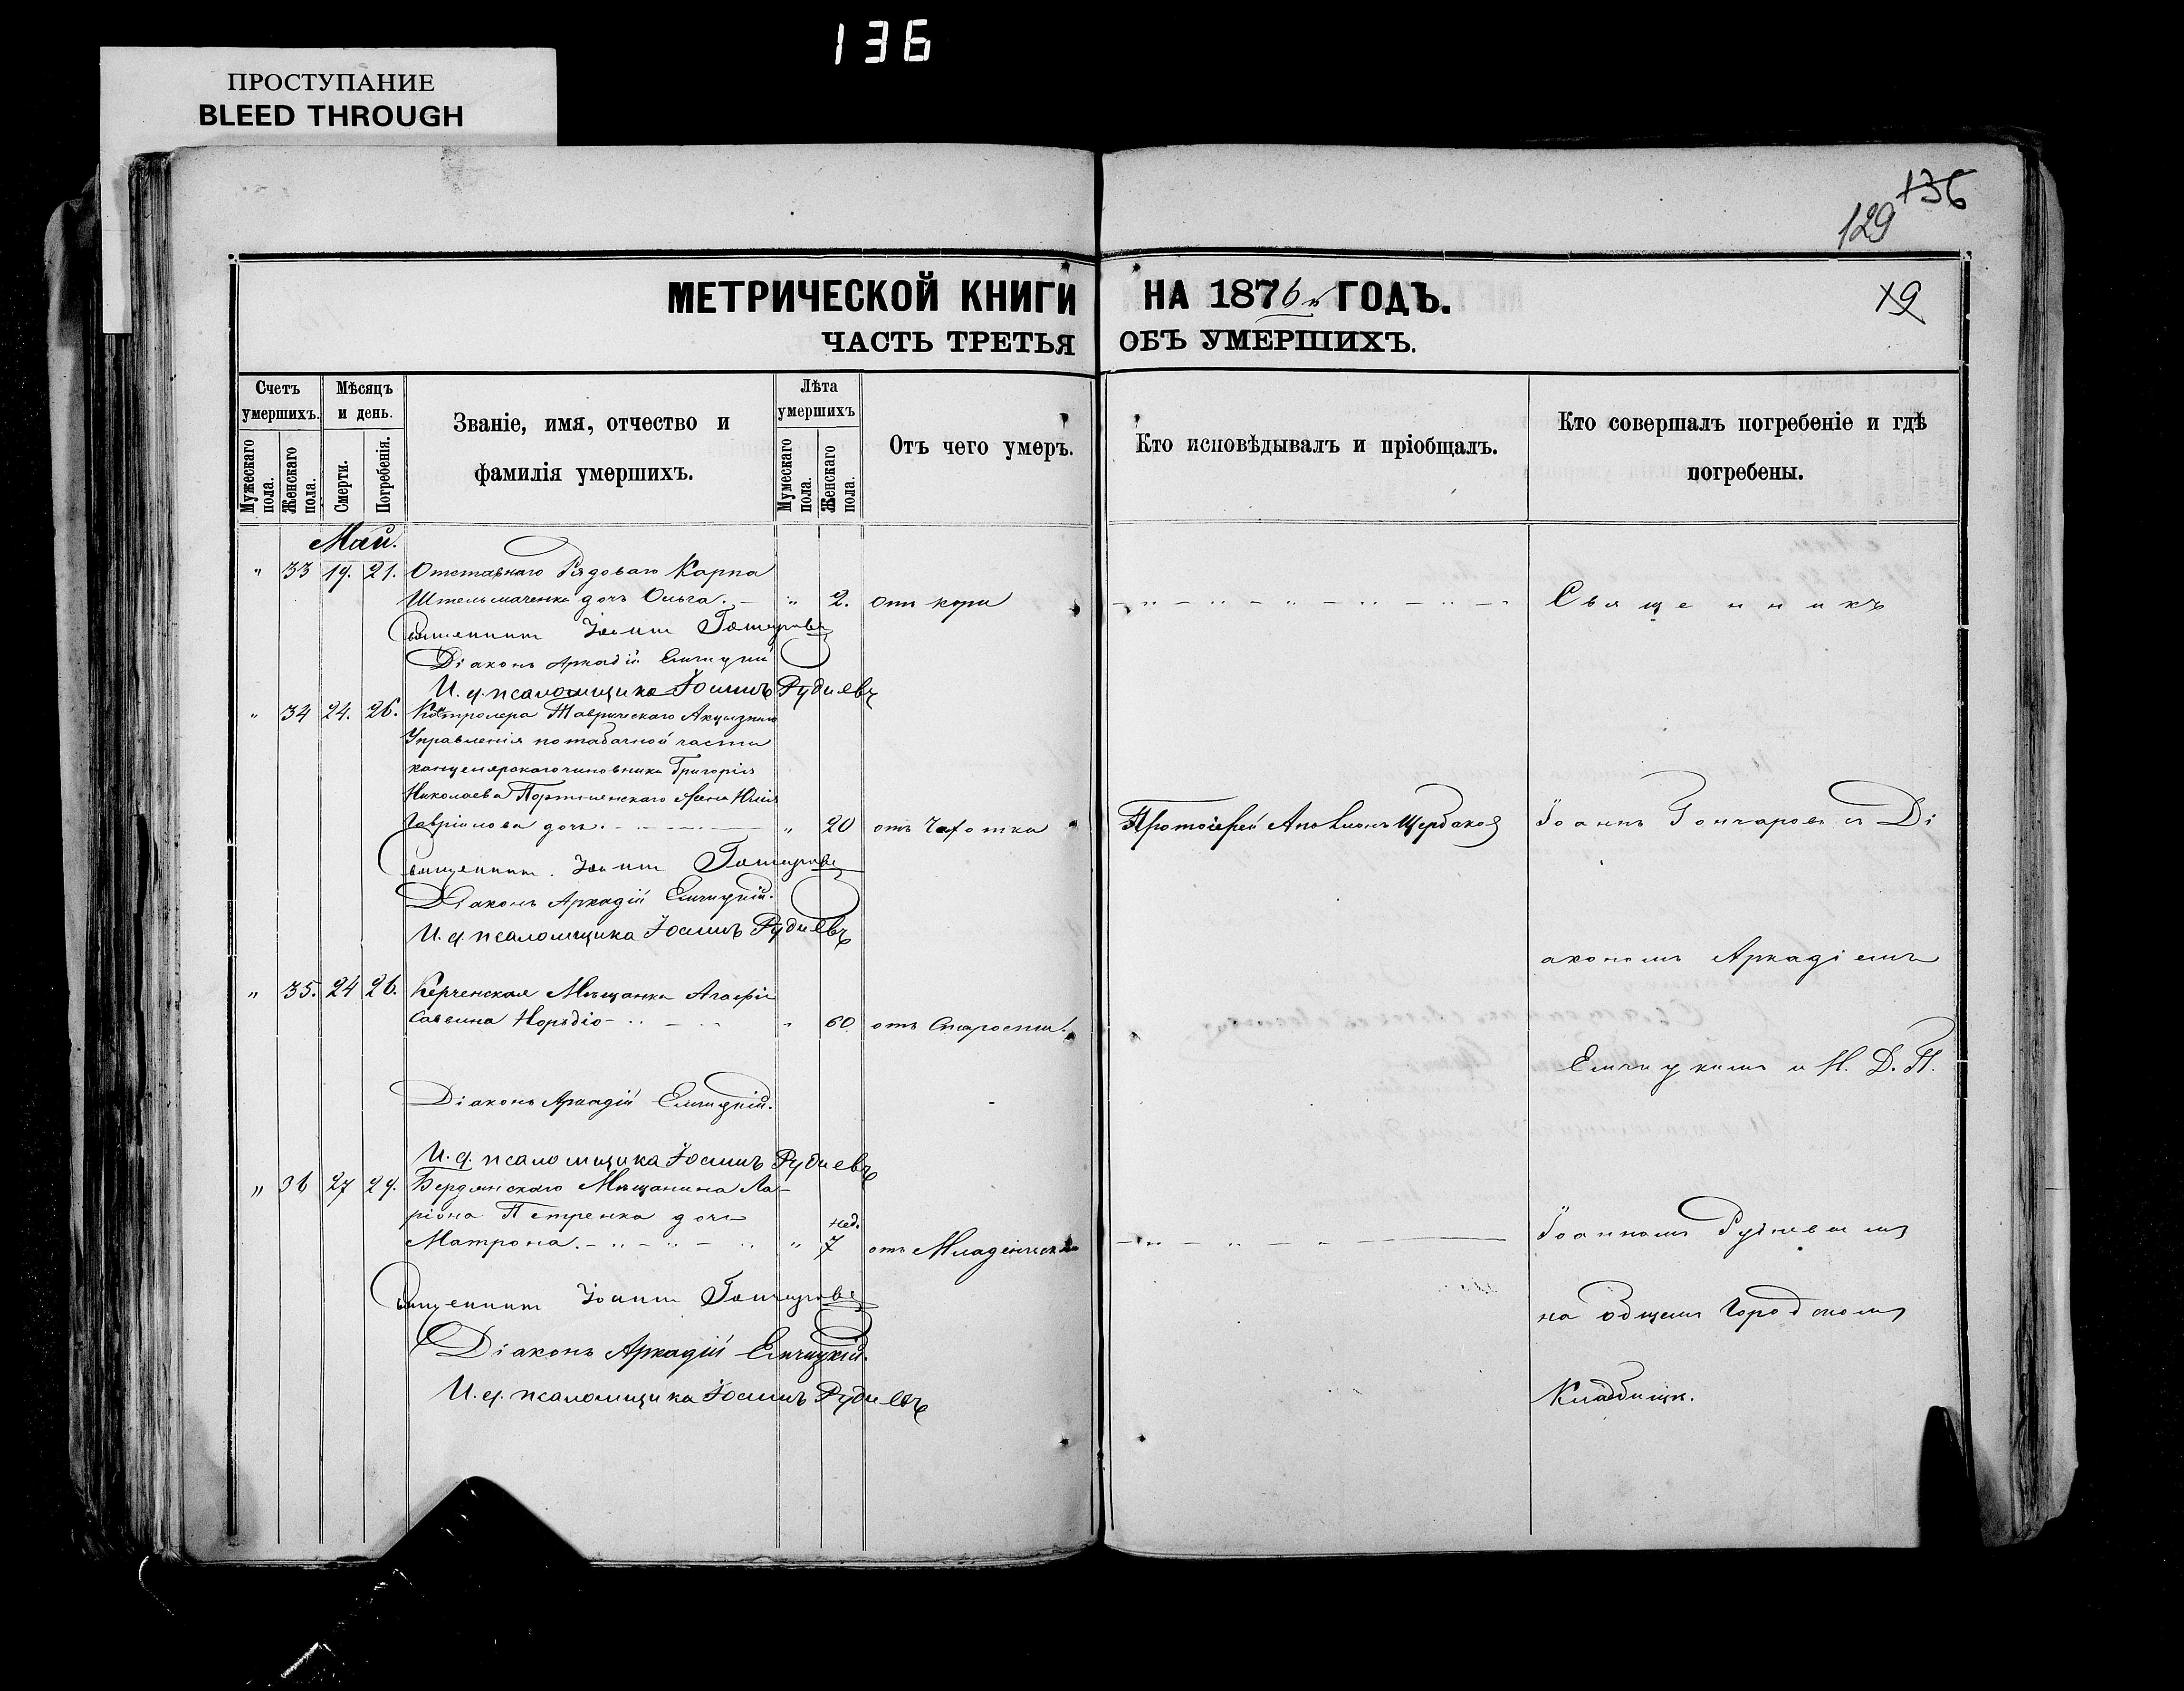 136
ПРОСТУПАНИЕ
BLEED THROUGH
136
129
МЕТРИЧЕСКОЙ КНИГИ НА 1876 й ГОДЪ.
19
ЧАСТЬ ТРЕТЬЯ ОБЪ УМЕРШИХЪ.
Счетъ умершихъ.
Мужескаго пола.
Женскаго пола.
Мѣсяцъ и день.
Смерти.
Погребенія.
Званіе, имя, отчество и
фамилія умершихъ.
Лѣта умершихъ
Мужескаго пола.
Женскаго пола.
Отъ чего умеръ.
Кто исповѣдывалъ и пріобщалъ.
Кто совершалъ погребеніе и гдѣ
погребены.
Май.
" 33 19. 21. Отставнаго Рядоваго Карпа
Штельмаченка дочь Ольга. " 2. отъ кори
Священникъ Іоаннъ Гончаровъ
Діаконъ Аркадій Ельчицкій
И. д. псаломщика Іоаннъ Рудневъ
" 34 24. 26. Контролера Таврическаго Акцизнаго
Управленія по табачной части
канцелярскаго чиновника Григорія
Николаева жена Юлія
Гавріилова дочь. " 20 отъ Чахотки Протоіерей Щербаковъ
Священникъ Іоаннъ Гончаровъ
Діаконъ Аркадій Ельчицкій.
И. д. псаломщика Іоаннъ Рудневъ
" 35. 24 26. Керченская Мѣщанка Агафія
Саввина " 60. отъ Старости.
Діаконъ Аркадій Ельчицкій.
И. д. псаломщика Іоаннъ Рудневъ
" 36 27 29. Бердянскаго Мѣщанина Ла-
ріона Петренка дочь
Матрона. " нед. 7 отъ Младенческ
Священникъ Іоаннъ Гончаровъ
Діаконъ Аркадій Ельчицкій.
И. д. псаломщика Іоаннъ Рудневъ
Священникъ
Іоаннъ Гончаровъ съ Ді
акономъ Аркадіемъ
Ельчицкимъ и И. Д. П.
Іоанномъ Рудневымъ
на общемъ Городскомъ
Кладбищѣ.